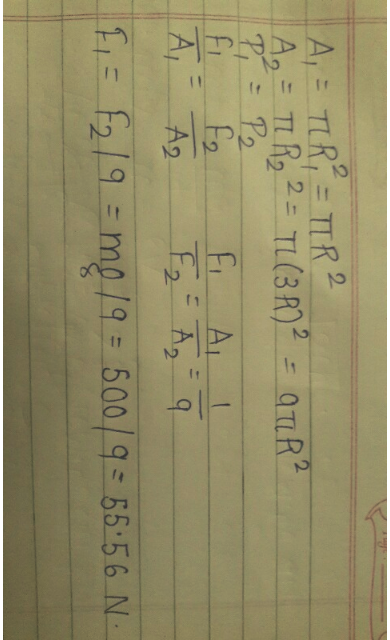 A₁ = πR₁² = πR²
A₂ = πR₂² = π(3R)² = 9πR²
P₁ = P₂
F₁/A₁ = F₂/A₂    F₁/F₂ = A₁/A₂ = 1/9
F₁ = F₂/9 = mg/9 = 500/9 = 55.56 N.